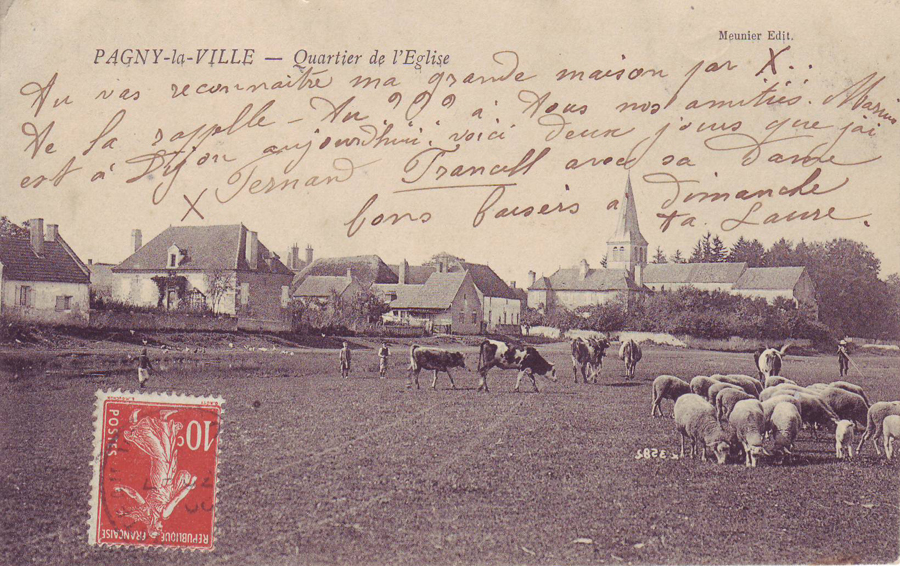 PAGNY-la-VILLE — Quartier de l'Eglise
Meunier Edit.
Tu vas reconnaitre ma grande maison par X..
De la rappelle - Au à Tous nos amitiés. Marius
est à Dijon aujourdhui. voici deux jours que j'ai
X Fernand Trancell avec sa Dame
bons baisers a Dimanche
ta Laure.
10c
POSTES
REPUBLIQUE FRANÇAISE